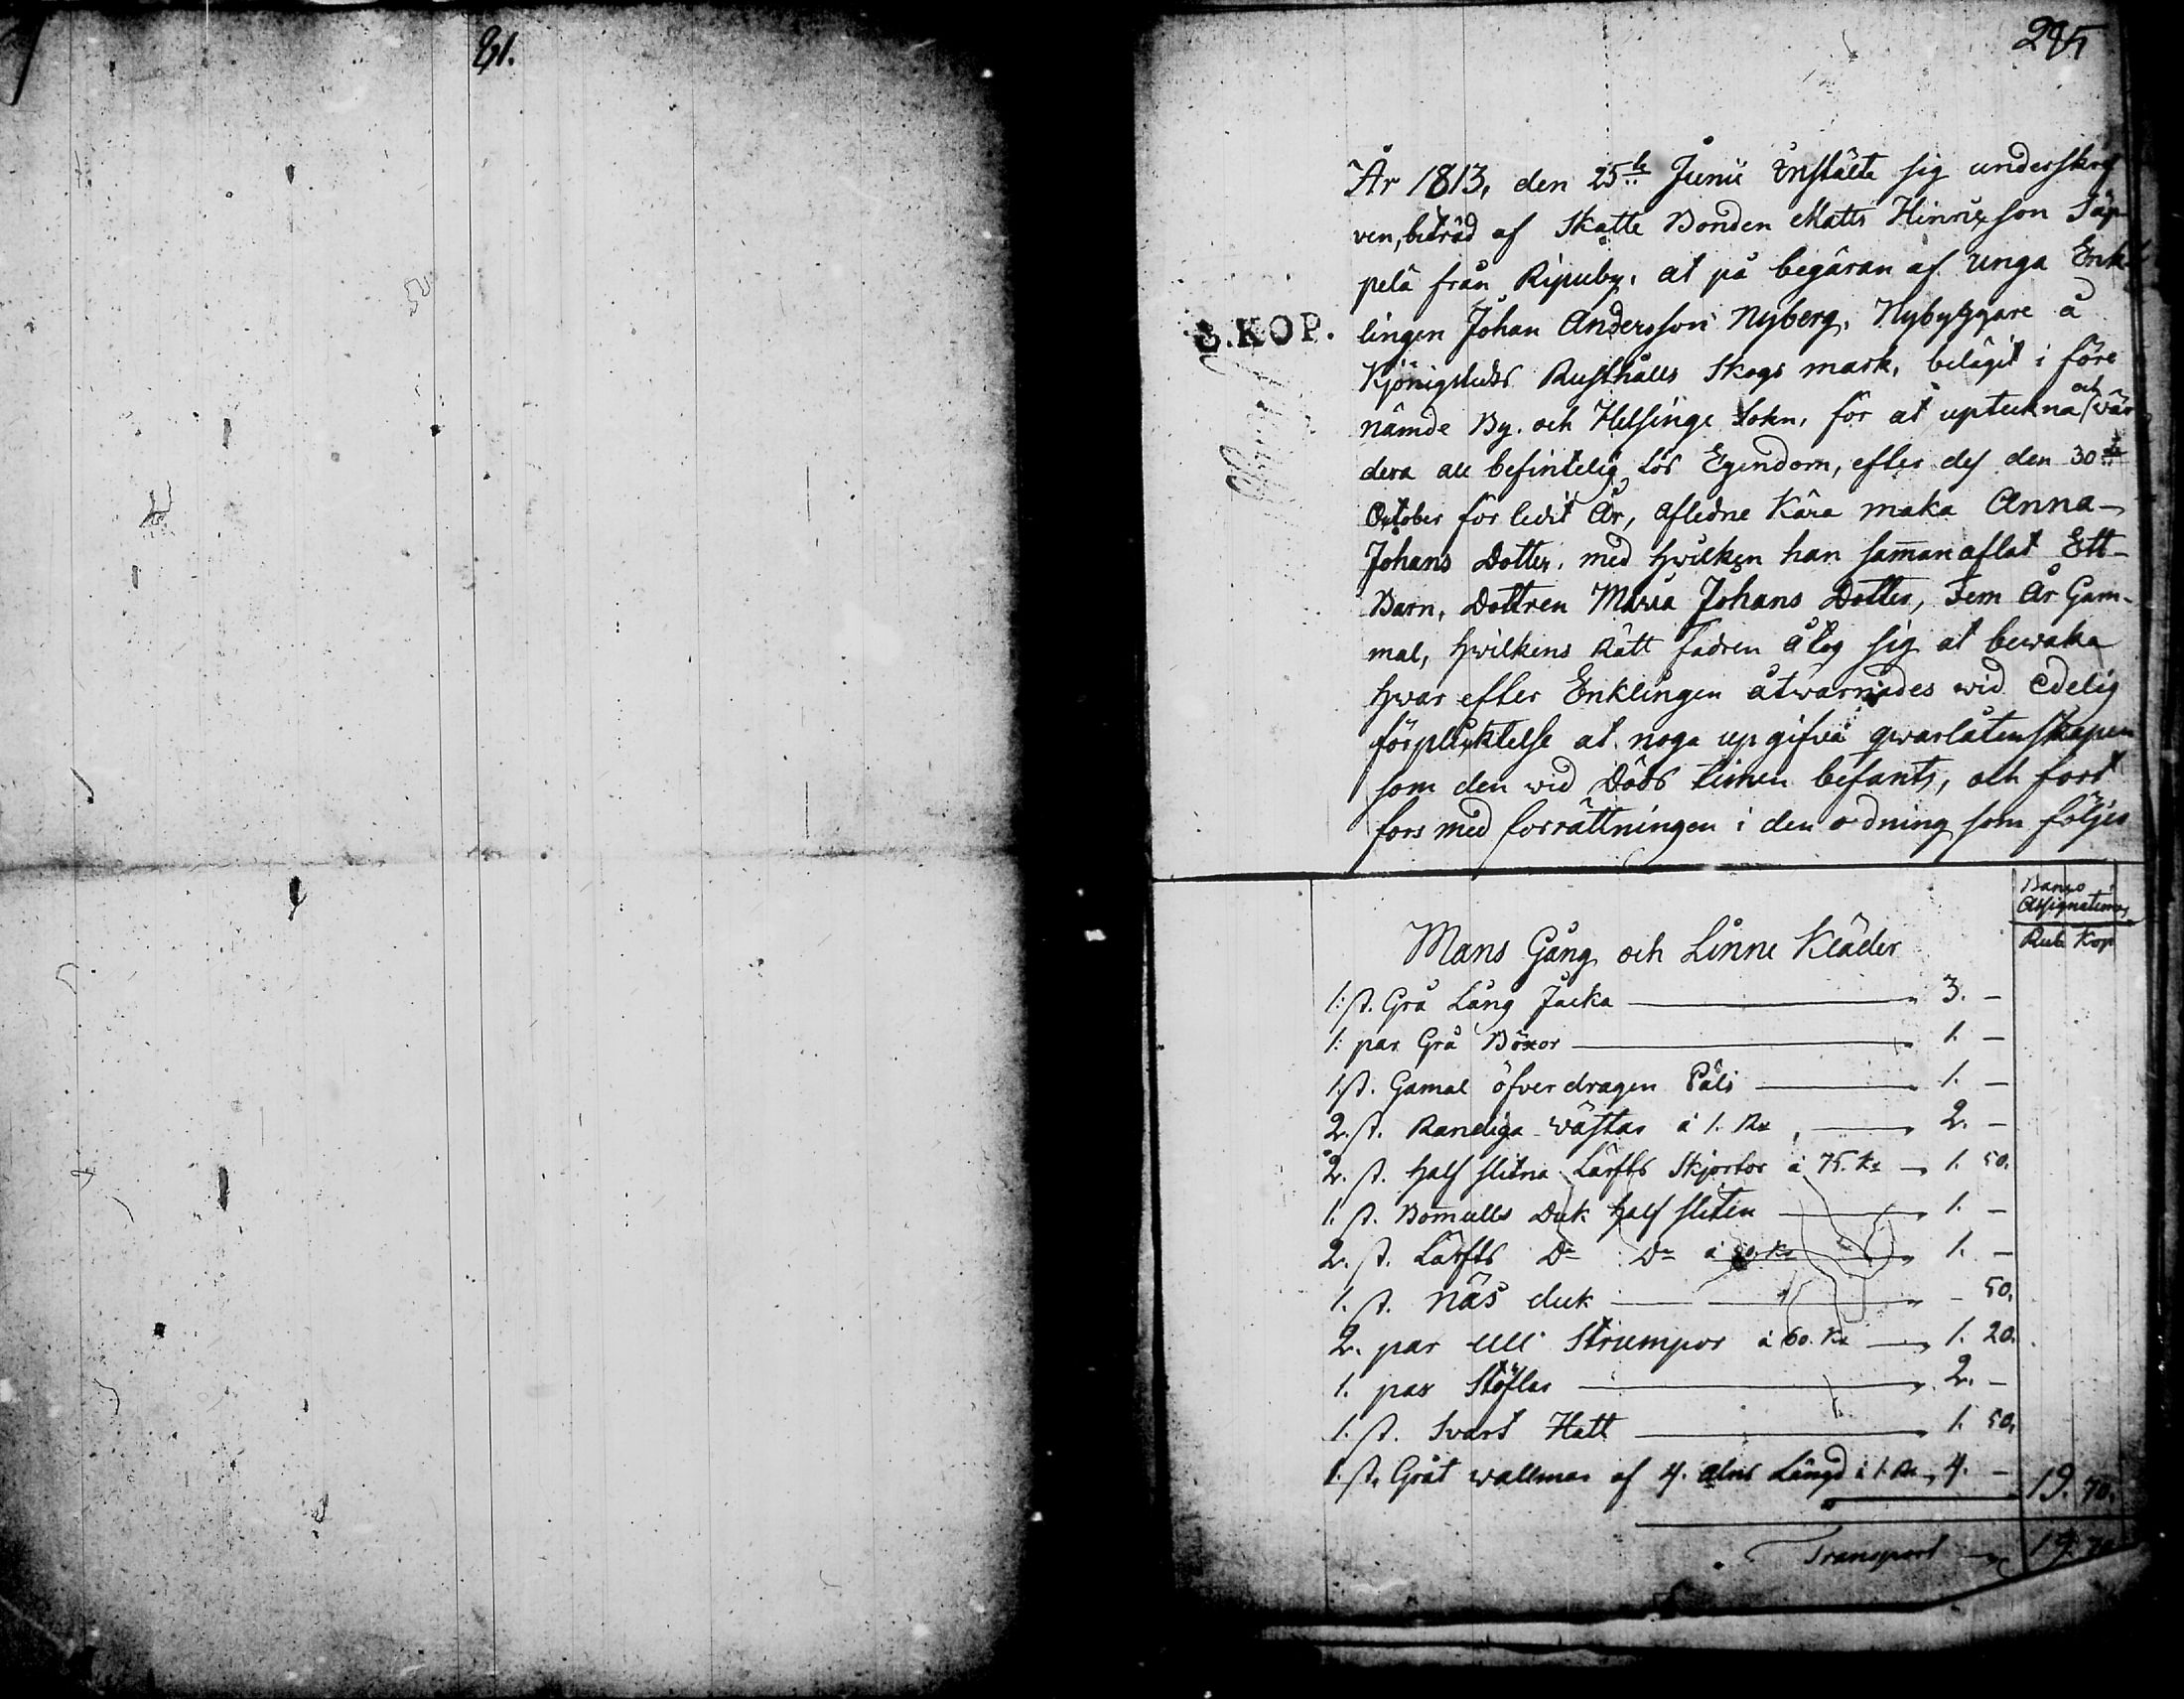 81.
År 1813, den 25te Junii Instälte sig underskref
ven, biträd af Skatte Bonden Matts Hinricsson Säp
pelä från Ripuby, at på begäran af Unga Enk
lingen Johan Andersson Nyberg, Nybyggare å
S. KOP.
Kjönigstedts Rusthålls Skogs mark, belägit i före
nämde By. och Helsinge Sokn, för at uptekna och wär
dera all befintelig Lös Egendom, efter des den 30de
October för ledit År, afledne Kära maka Anna
Johans Dotter, med hwilken han samanaflat Ett
Barn, Dottren Maria Johans Dotter, Fem År Gam-
mal, hwilkens Rätt Fadren åtog sig at bewaka
hwar efter Enklingen åtwarnades wid Edelig
förplicktelse at noga upgifva qwarlåtenskapen
som den wid Döds timen befants, och fort
fors med forrättningen i den ordning som följer
Banco Assignationer
Rub. Kop
Mans Gång och Linne Kläder
1: st. Grå Lång Jacka 3. –
1: par Grå Böxor 1. –
1. st. Gamal öfverdragen Päls 1. –
2. st. Randiga wästar à 1. Rr 2. –
2. st. half slitna Lärfts Skjortor à 75. Kr 1. 50.
1. st. Bomulls Duk half sliten 1. –
2. st. Lärfts Do Do à 50 Kr 1. –
1. st. näs duk – 50.
2. par Ull Strumpor à 60. Kr 1. 20.
1. par Stöflar 2. –
1. st. Svart Hatt 1. 50.
1. st. Gråt wallmar af 4. alns Längd à 1. Rr 4. – 19. 70.
Transport 19. 70